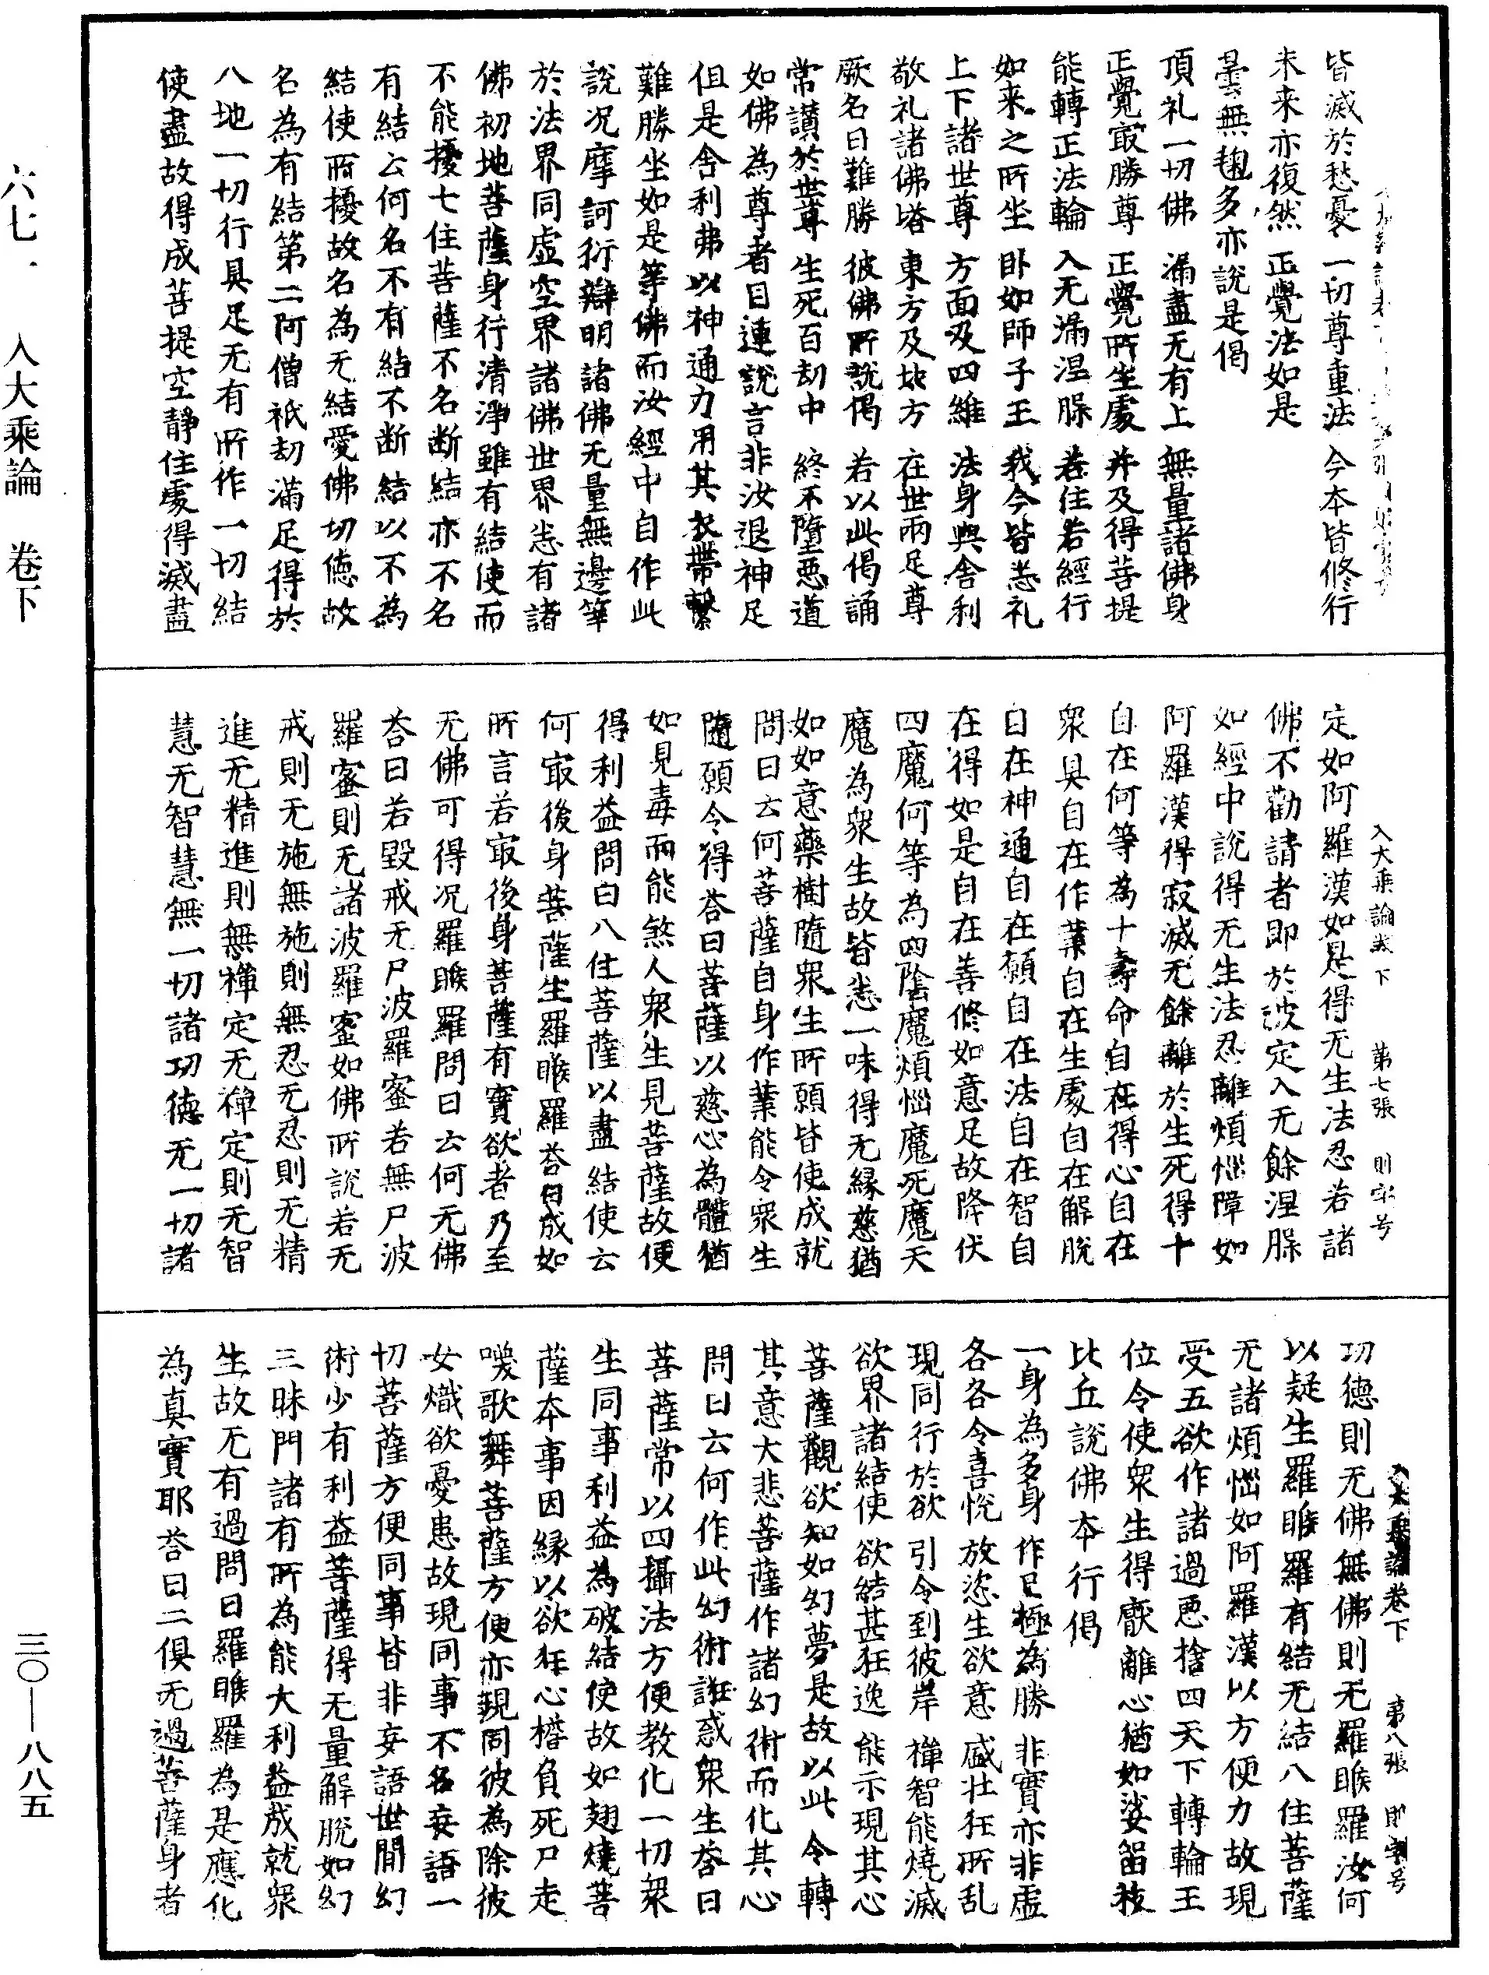 六七一　入大乘論　卷下
三〇—八八五
皆滅於愁憂　一切尊重法　今本皆修行
未来亦復然　正覺法如是
曇無毱多亦說是偈
頂礼一切佛　漏盡无有上　無量諸佛身
正覺㝡勝尊　正覺所坐處　并及得菩提
能轉正法輪　入无漏涅脲　若住若經行
如来之所坐　卧如師子王　我今皆悉礼
上下諸世尊　方面及四維　法身與舍利
敬礼諸佛塔　東方及北方　在世兩足尊
厥名曰難勝　彼佛所說偈　若以此偈誦
常讃於世尊　生死百刧中　終不墮惡道
如佛為尊者目連說言非汝退神足
但是舎利弗以神通力用其衣帶繫
難勝坐如是等佛而汝經中自作此
說况摩訶衍辯明諸佛无量無邊等
於法界同虛空界諸佛世界悉有諸
佛初地菩薩身行清淨雖有結使而
不能擾七住菩薩不名断結亦不名
有結云何名不有結不断結以不為
結使所擾故名為无結愛佛切德故
名為有結第二阿僧祇刧滿足得於
八地一切行具足无有所作一切結
使盡故得成菩提空靜住處得滅盡
入大乘論卷下　第七張　則字号
定如阿羅漢如是得无生法忍若諸
佛不勸請者即於彼定入无餘涅脲
如經中說得无生法忍離煩惱障如
阿羅漢得寂滅无餘離於生死得十
自在何等為十壽命自在得心自在
衆具自在作業自在生處自在解脫
自在神通自在願自在法自在智自
在得如是自在善修如意足故降伏
四魔何等為四陰魔煩惱魔死魔天
魔為衆生故皆悉一味得无緣慈猶
如如意藥樹隨衆生所願皆使成就
問曰云何菩薩自身作業能令衆生
隨願令得荅曰菩薩以慈心為體猶
如見毒而能煞人衆生見菩薩故便
得利益問曰八住菩薩以盡結使云
何㝡後身菩薩生羅睺羅荅曰成如
所言若㝡後身菩薩有實欲者乃至
无佛可得况羅睺羅問曰云何无佛
荅曰若毀戒无尸波羅蜜若無尸波
羅蜜則无諸波羅蜜如佛所說若无
戒則无施無施則無忍无忍則无精
進无精進則無禪定无禪定則无智
慧无智慧無一切諸功德无一切諸
入大乘論卷下　第八張　則字号
功德則无佛無佛則无羅睺羅汝何
以疑生羅睺羅有結无結八住菩薩
无諸煩惱如阿羅漢以方便力故現
受五欲作諸過惡捨四天下轉輪王
位令使衆生得猒離心猶如娑畱枝
比丘說佛本行偈
一身為多身　作已極為勝　非實亦非虛
各各令喜悅　放恣生欲意　盛壯狂所乱
現同行於欲　引令到彼岸　禪智能燒滅
欲界諸結使　欲結甚狂逸　能示現其心
菩薩觀欲知如幻夢是故以此令轉
其意大悲菩薩作諸幻術而化其心
問曰云何作此幻術誑惑衆生荅曰
菩薩常以四攝法方便教化一切衆
生同事利益為破結使故如翅燒菩
薩本事因緣以欲狂心檐負死尸走
㗛歌舞菩薩方便亦現同彼為除彼
女熾欲憂患故現同事不名妄語一
切菩薩方便同事皆非妄語世間幻
術少有利益菩薩得无量解脫如幻
三昧門諸有所為能大利益成就衆
生故无有過問曰羅睺羅為是應化
為真實耶荅曰二俱无過菩薩身者